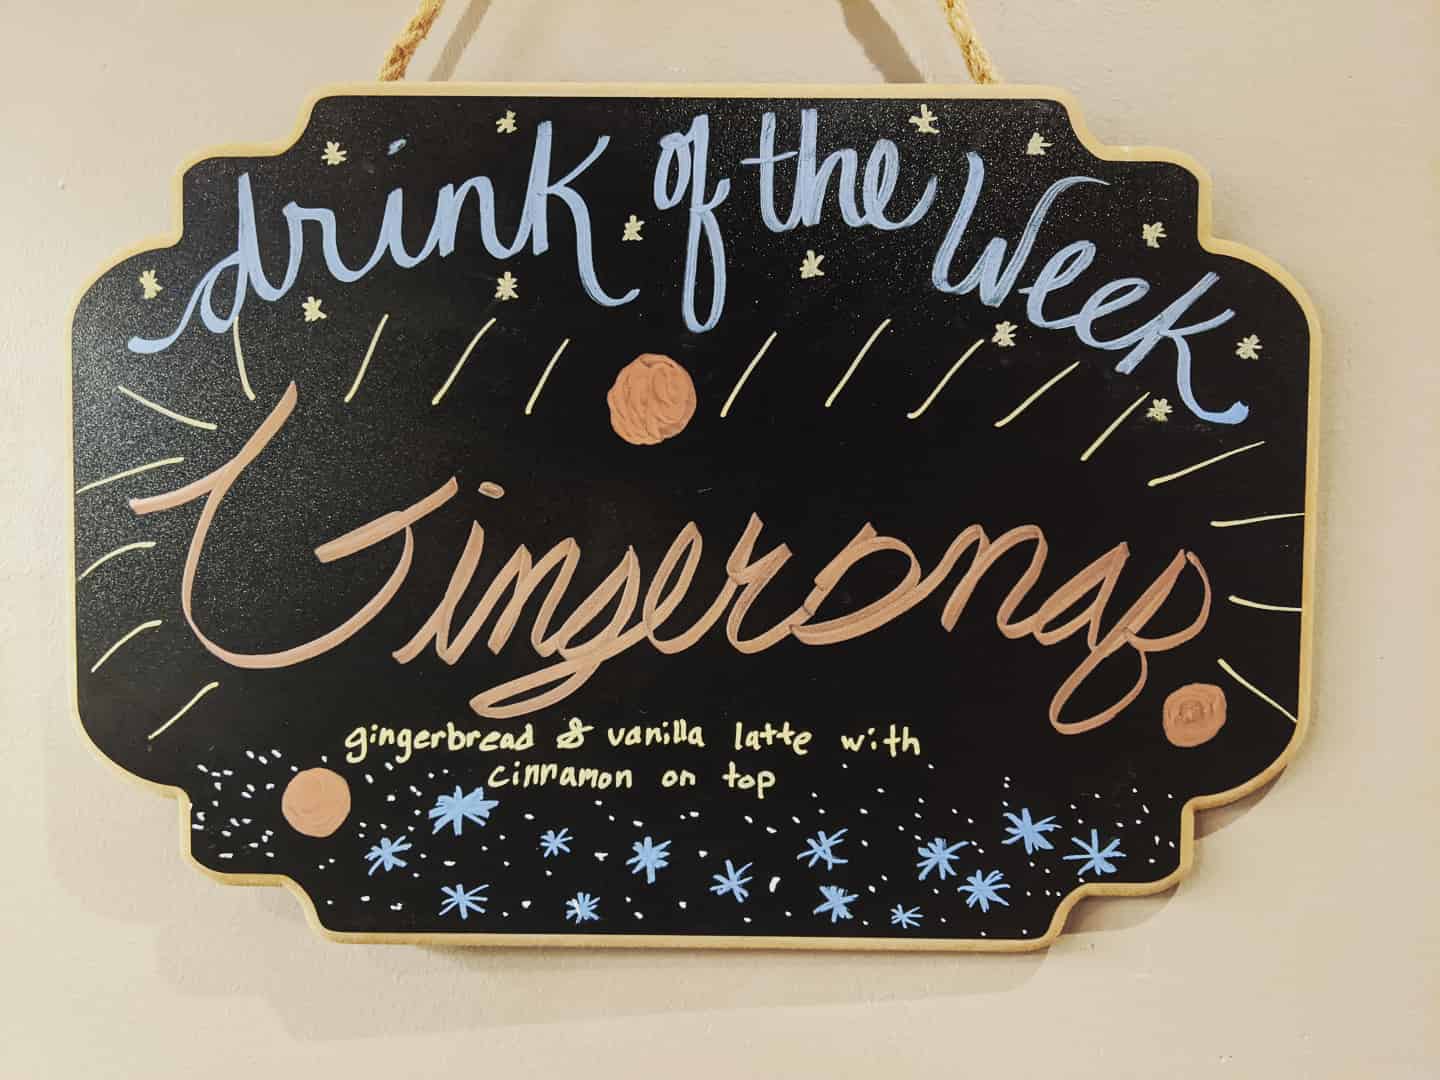 drink of the Week
Gingersnap
gingerbread & vanilla latte with
cinnamon on top